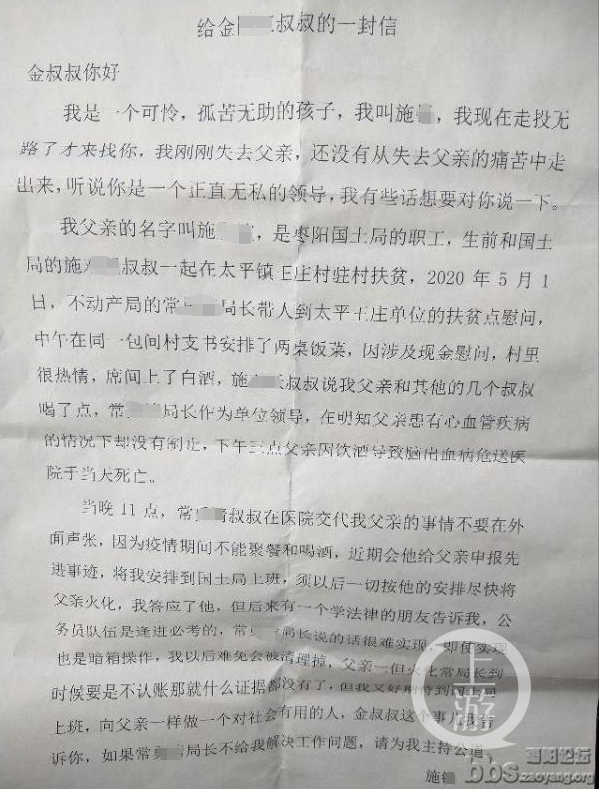 给金 叔叔的一封信
金叔叔你好
我是一个可怜，孤苦无助的孩子，我叫施 ，我现在走投无
路了才来找你，我刚刚失去父亲，还没有从失去父亲的痛苦中走
出来，听说你是一个正直无私的领导，我有些话想要对你说一下。
我父亲的名字叫施 ，是枣阳国土局的职工，生前和国土
局的施 叔叔一起在太平镇王庄村驻村扶贫，2020 年 5 月 1
日，不动产局的常 局长带人到太平王庄单位的扶贫点慰问，
中午在同一包间村支书安排了两桌饭菜，因涉及现金慰问，村里
很热情，席间上了白酒，施 叔叔说我父亲和其他的几个叔叔
喝了点，常 局长作为单位领导，在明知父亲患有心血管疾病
的情况下却没有制止，下午三点父亲因饮酒导致脑出血病危送医
院于当天死亡。
当晚 11 点，常 叔叔在医院交代我父亲的事情不要在外
面声张，因为疫情期间不能聚餐和喝酒，近期会他给父亲申报先
进事迹，将我安排到国土局上班，须以后一切按他的安排尽快将
父亲火化，我答应了他，但后来有一个学法律的朋友告诉我，公
务员队伍是逢进必考的，常 局长说的话很难实现，即使实现
也是暗箱操作，我以后难免会被清理掉，父亲一但火化常局长到
时候要是不认账那就什么证据都没有了，但我又好期待到国土局
上班，向父亲一样做一个对社会有用的人，金叔叔这个事儿我告
诉你，如果常 局长不给我解决工作问题，请为我主持公道。
施
上游
bbs.zaoyang.org